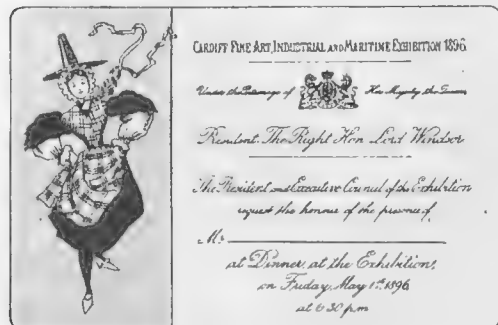 CARDIFF FINE ART, INDUSTRIAL AND MARITIME EXHIBITION 1896.
Under the Patronage of Her Majesty the Queen
President, The Right Hon Lord Windsor
The President and Executive Council of the Exhibition
request the honour of the presence of
Mr
at Dinner, at the Exhibition,
on Friday, May 1st, 1896
at 6 30 p.m